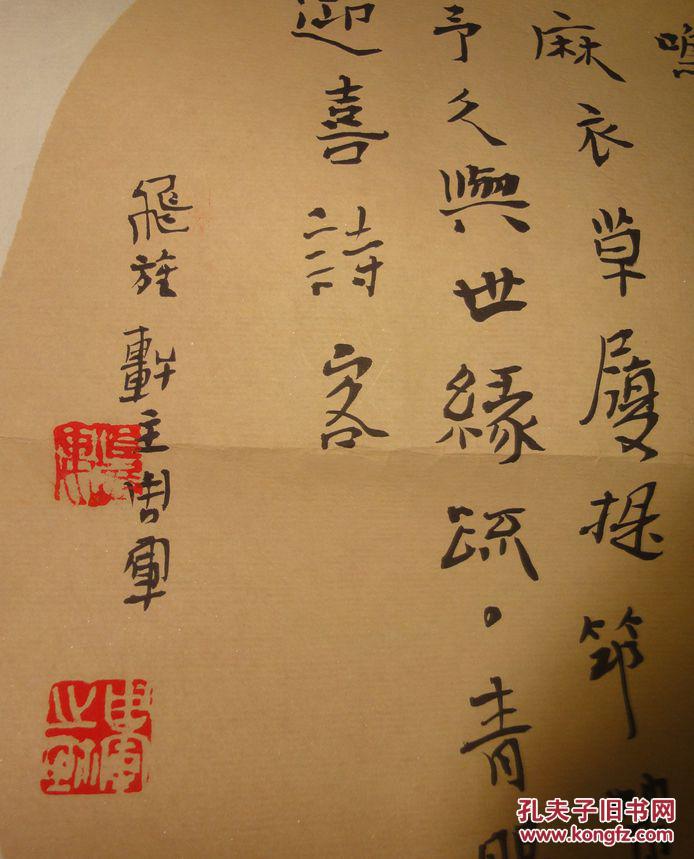 麻衣草履提筇
予久與世緣疏。青
迎喜詩客
飛旌軒主周軍
孔夫子旧书网
www.kongfz.com